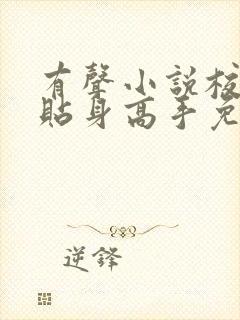 有聲小說校
貼身高手免
逆鋒